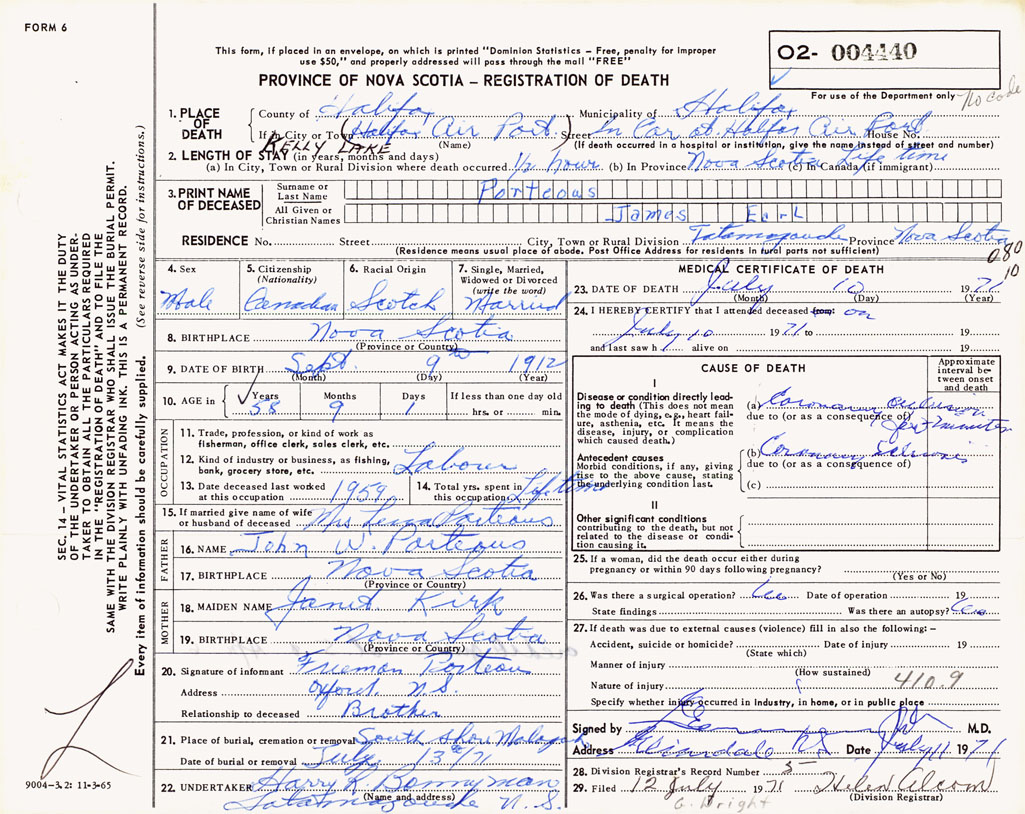 FORM 6
This form, if placed in an envelope, on which is printed "Dominion Statistics – Free, penalty for improper
use $50," and properly addressed will pass through the mail "FREE"
O2- 004440
PROVINCE OF NOVA SCOTIA – REGISTRATION OF DEATH
For use of the Department only
No code
1. PLACE OF DEATH
County of Halifax Municipality of Halifax
If in City or Town (Halifax Air Port) Street In Car at Halifax Air Port House No.
(Name) (If death occurred in a hospital or institution, give the name instead of street and number)
KELLY LAKE
2. LENGTH OF STAY (in years, months and days)
(a) In City, Town or Rural Division where death occurred 1/2 hour (b) In Province Nova Scotia (c) In Canada (if immigrant) Life time
3. PRINT NAME OF DECEASED
Surname or Last Name Porteous
All Given or Christian Names James Earl
RESIDENCE No. Street City, Town or Rural Division Tatamagouche Province Nova Scotia
(Residence means usual place of abode. Post Office Address for residents in rural parts not sufficient)
080
10
4. Sex Male
5. Citizenship (Nationality) Canadian
6. Racial Origin Scotch
7. Single, Married, Widowed or Divorced (write the word) Married
8. BIRTHPLACE Nova Scotia
(Province or Country)
9. DATE OF BIRTH Sept. 9th 1912
(Month) (Day) (Year)
10. AGE in Years 58 Months 9 Days 1 If less than one day old hrs. or min.
OCCUPATION
11. Trade, profession, or kind of work as fisherman, office clerk, sales clerk, etc.
12. Kind of industry or business, as fishing, bank, grocery store, etc. Labour
13. Date deceased last worked at this occupation 1959
14. Total yrs. spent in this occupation Life time
15. If married give name of wife or husband of deceased Mrs Porteous
FATHER
16. NAME John W. Porteous
17. BIRTHPLACE Nova Scotia
(Province or Country)
MOTHER
18. MAIDEN NAME Janet Kirk
19. BIRTHPLACE Nova Scotia
(Province or Country)
20. Signature of informant Freeman Porteous
Address Oxford, N.S.
Relationship to deceased Brother
21. Place of burial, cremation or removal South Shore Malagash
Date of burial or removal July 13th/71
22. UNDERTAKER Harry R Bonnyman
Tatamagouche N. S.
(Name and address)
MEDICAL CERTIFICATE OF DEATH
23. DATE OF DEATH July 10 1971
(Month) (Day) (Year)
24. I HEREBY CERTIFY that I attended deceased from: on
July 10 1971 to 19
and last saw h alive on 19
CAUSE OF DEATH
Approximate interval between onset and death
I
Disease or condition directly leading to death (This does not mean the mode of dying, e.g., heart failure, asthenia, etc. It means the disease, injury, or complication which caused death.)
(a) Coronary occlusion
due to (or as a consequence of)
minutes
Antecedent causes
Morbid conditions, if any, giving rise to the above cause, stating the underlying condition last.
(b) Coronary Sclerosis
due to (or as a consequence of)
(c)
II
Other significant conditions contributing to the death, but not related to the disease or condition causing it.
25. If a woman, did the death occur either during pregnancy or within 90 days following pregnancy?
(Yes or No)
26. Was there a surgical operation? Date of operation 19
State findings Was there an autopsy?
27. If death was due to external causes (violence) fill in also the following: –
Accident, suicide or homicide? Date of injury 19
(State which)
Manner of injury
(How sustained)
Nature of injury 410.9
Specify whether injury occurred in industry, in home, or in public place
Signed by M.D.
Address N.S. Date July 11 1971
28. Division Registrar's Record Number 5
29. Filed 12 July 1971 Helen Alcorn
(Division Registrar)
G. Wright
SEC. 14 – VITAL STATISTICS ACT MAKES IT THE DUTY
OF THE UNDERTAKER OR PERSON ACTING AS UNDER-
TAKER TO OBTAIN ALL THE PARTICULARS REQUIRED
IN THE "REGISTRATION OF DEATH" AND TO FILE THE
SAME WITH THE DIVISION REGISTRAR WHO SHALL ISSUE THE BURIAL PERMIT.
WRITE PLAINLY WITH UNFADING INK. THIS IS A PERMANENT RECORD.
Every item of information should be carefully supplied. (See reverse side for instructions.)
9004-3.2: 11-3-65